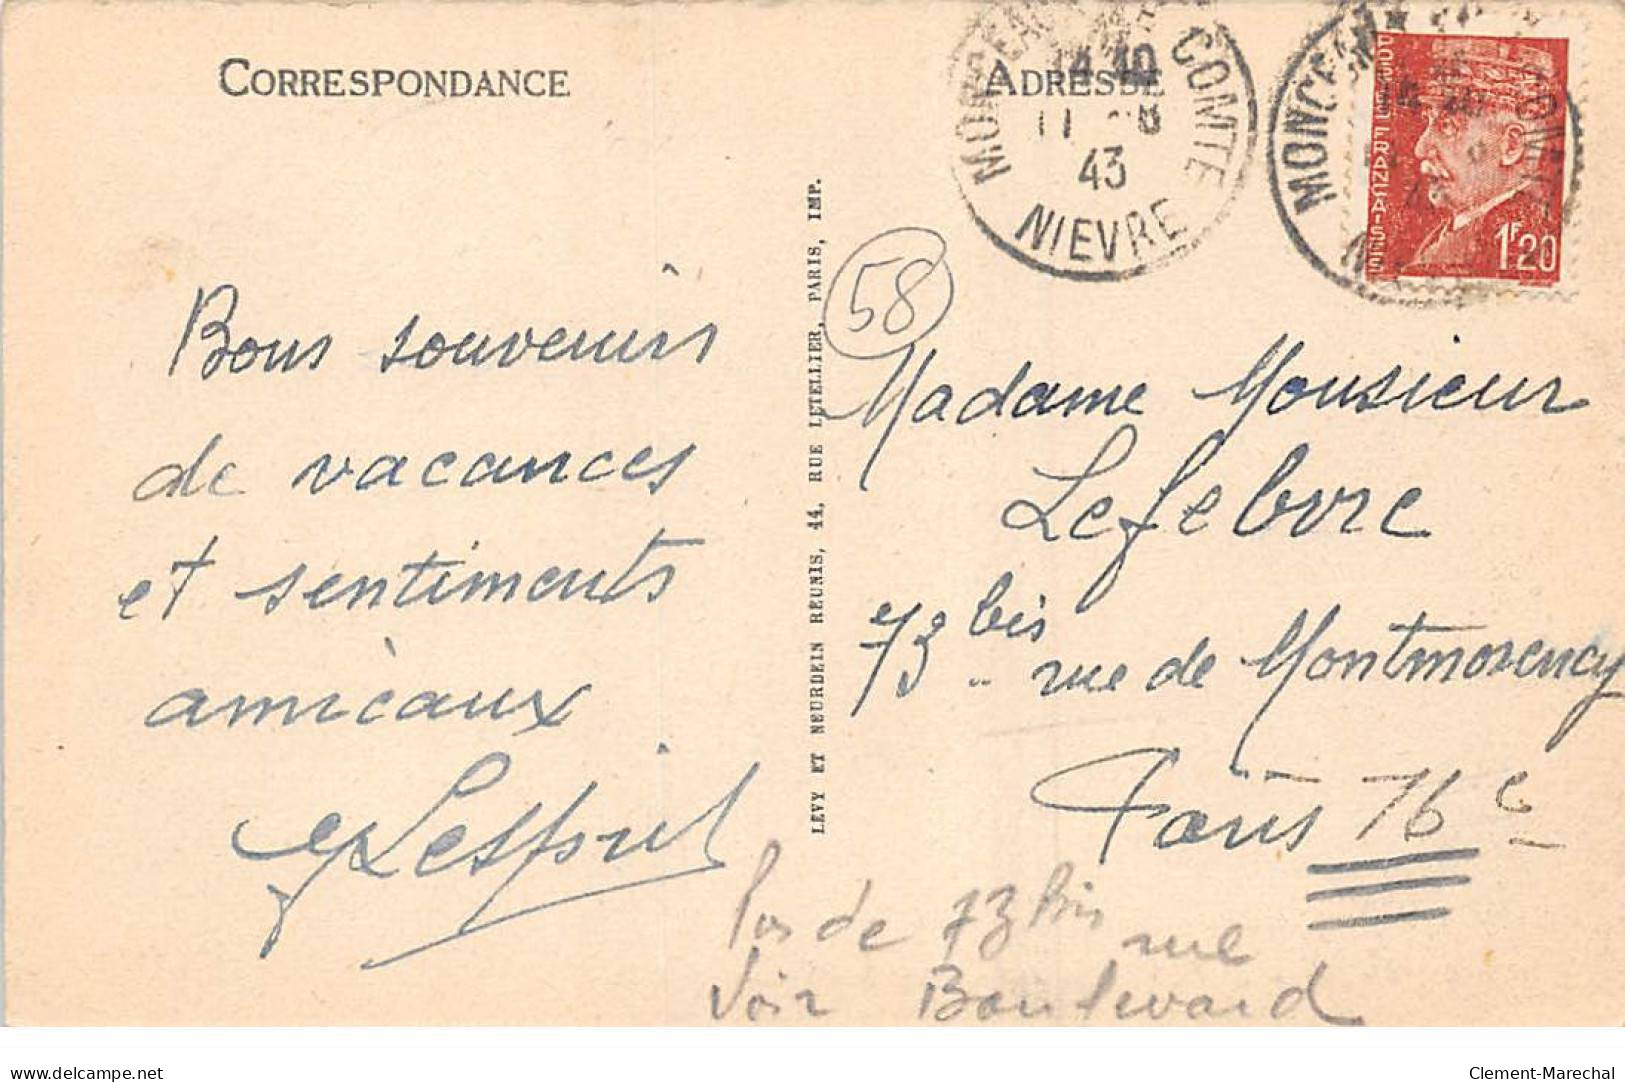 CORRESPONDANCE
ADRESSE
MONCEAUX COMTE
14 40
11 -8
43
NIEVRE
POSTES FRANÇAISES
1F20
58
Bons souvenirs
de vacances
et sentiments
amicaux
Lesprit
LEVY ET NEURDEIN RÉUNIS, 44, RUE LETELLIER, PARIS, IMP.
Madame Monsieur
Lefebvre
73 bis rue de Montmorency
Paris 16e
Pas de 73 bis rue
Voir Boulevard
delcampe.net
Clement-Marechal